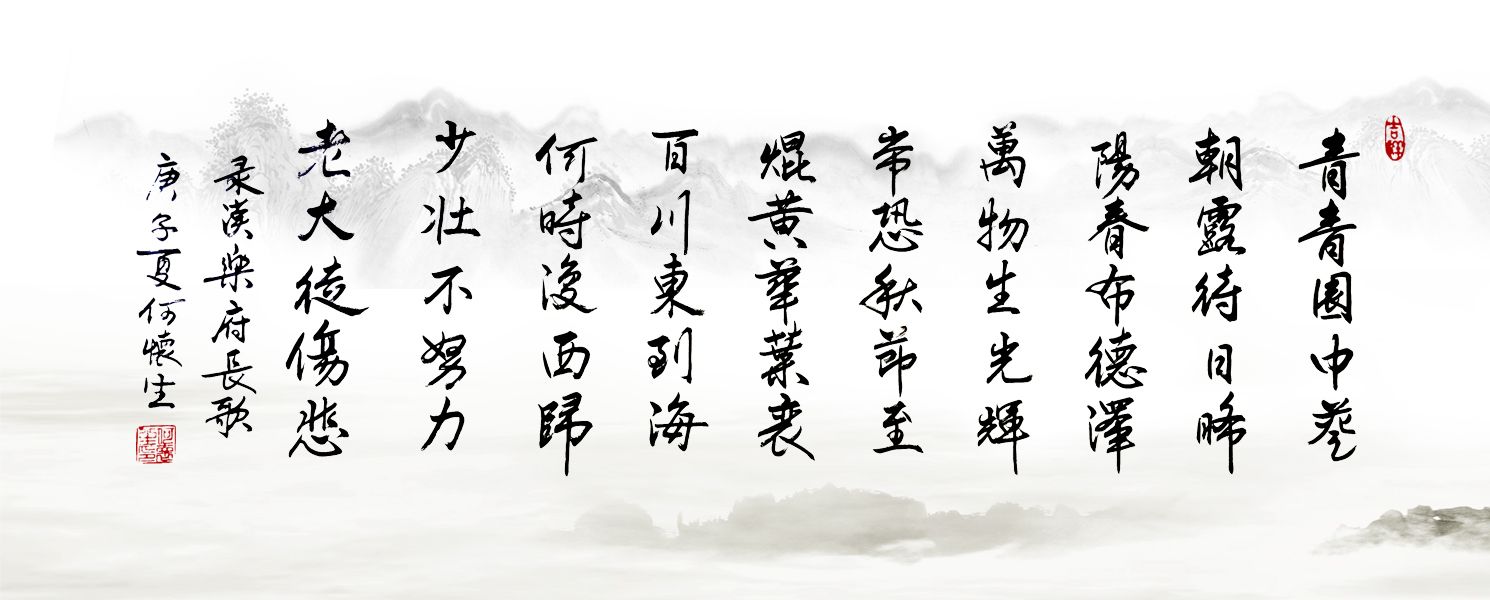 青青園中葵
朝露待日晞
陽春布德澤
萬物生光輝
常恐秋節至
焜黃華葉衰
百川東到海
何時復西歸
少壯不努力
老大徒傷悲
录漢樂府長歌
庚子夏何懷生